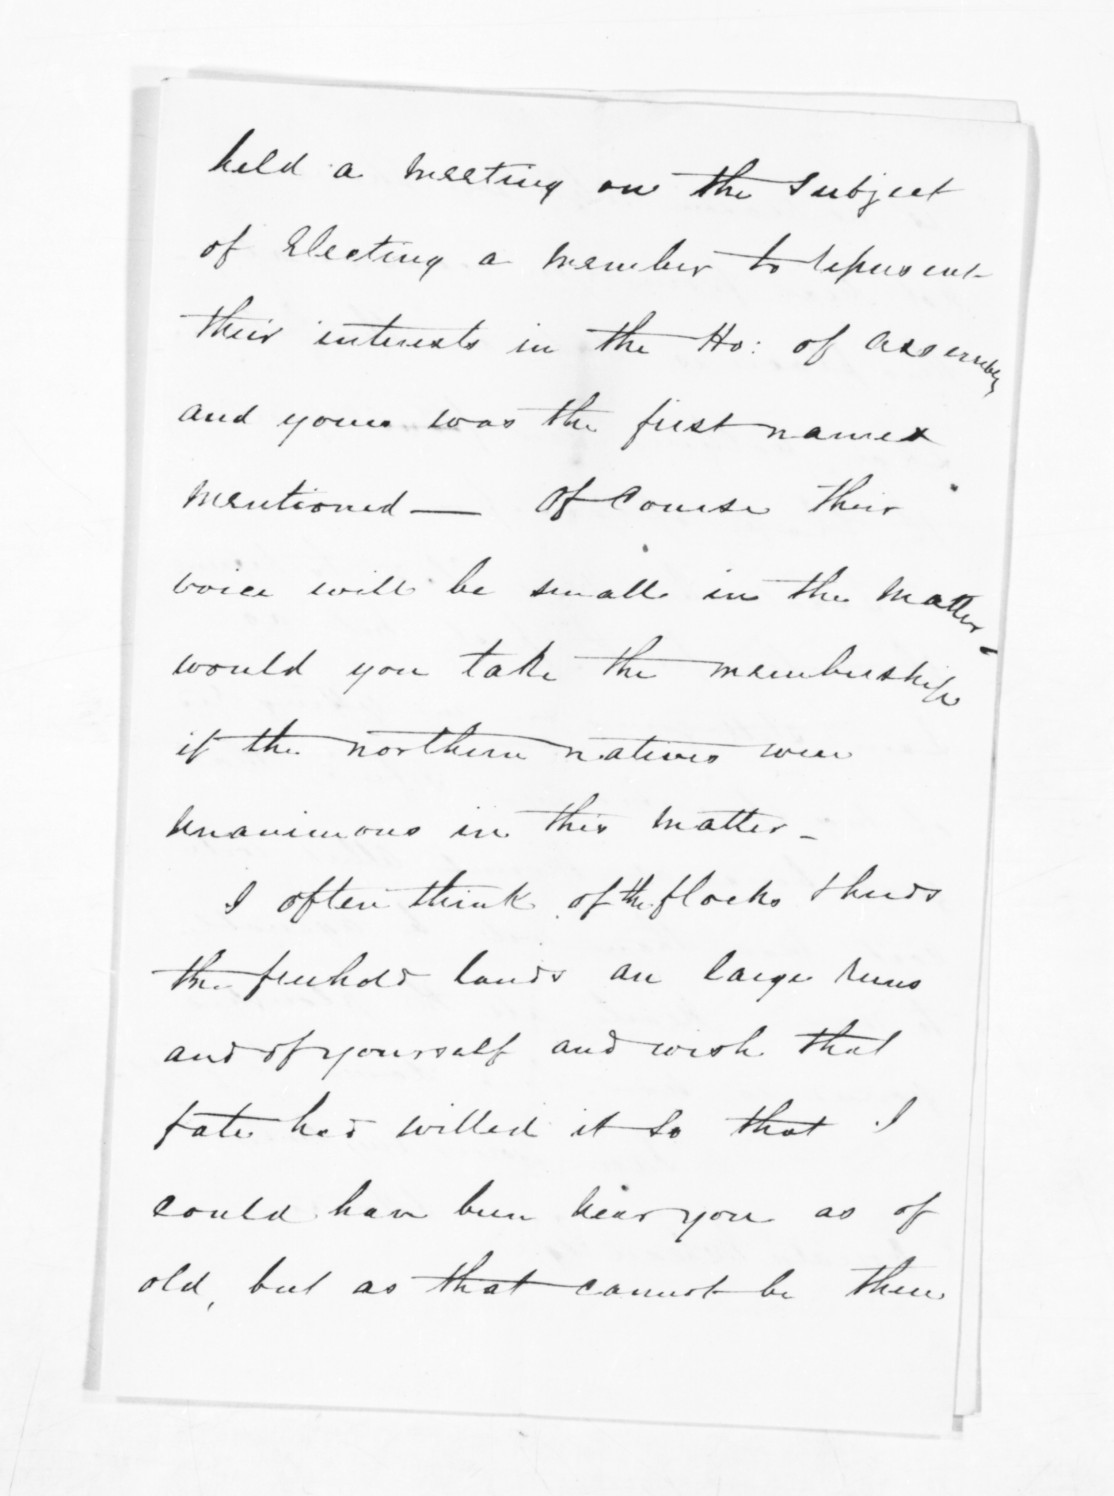 held a meeting on the subject
of Electing a member to represent
their interests in the Ho: of Assembly
and yours was the first names
mentioned — Of Course their
voice will be small in the matter -
would you take the membership
if the northern natives were
unanimous in this matter -
I often think of the flocks & herds
the freehold lands an large runs
and of yourself and wish that
fate had willed it so that I
could have been near you as of
old, but as that cannot be then